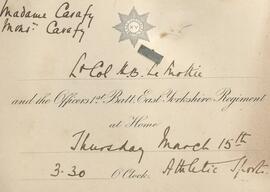 Madame Casafy
Monsr Casafy
Lt Col H.O. Le Mottie
and the Officers 1st Batt. East Yorkshire Regiment
at Home
Thursday March 15th
3.30 O'Clock. Athletic Sports